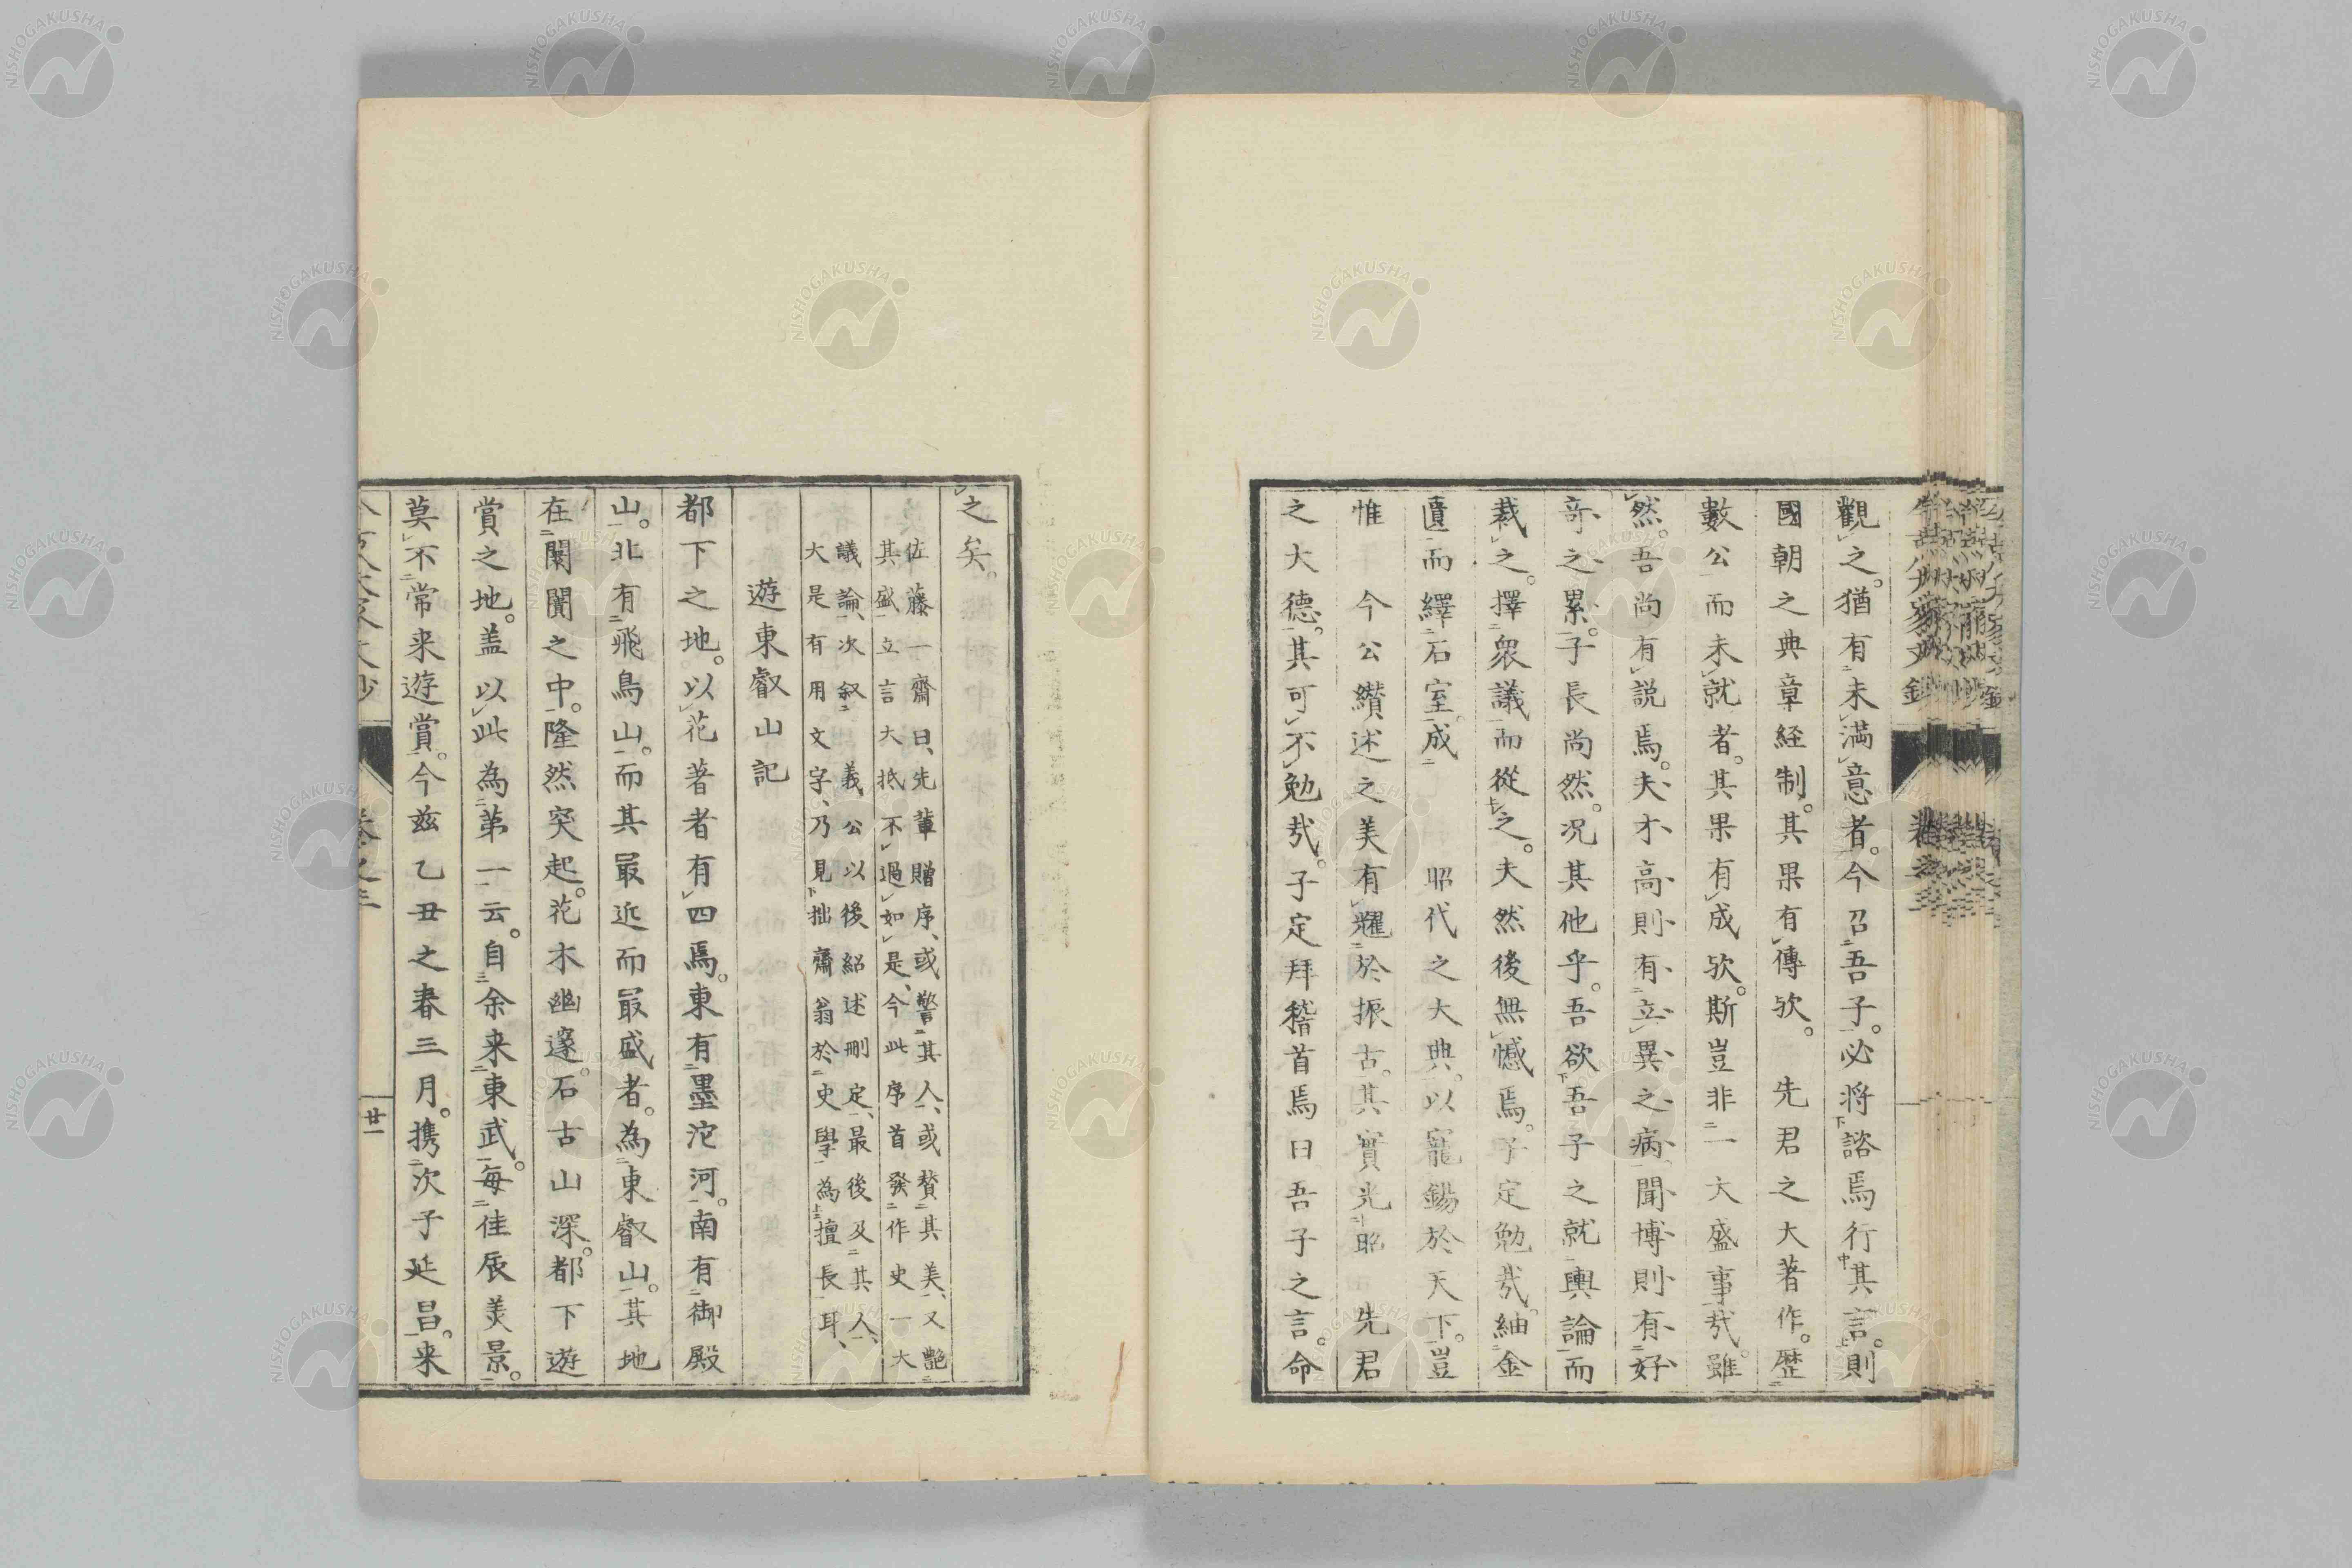 觀之。猶有未満意者。今召吾子。必将諮焉行其言。則
國朝之典章経制。其果有傳欤。　先君之大著作。歴
數公而未就者。其果有成欤。斯豈非一大盛事㦲。雖
然。吾尚有説焉。夫才高則有立異之病。聞博則有好
竒之累。子長尚然。况其他乎。吾欲吾子之就輿論而
裁之。擇衆議而從之。夫然後無憾焉。子定勉㦲。紬金
匱而繹石室成　昭代之大典。以寵錫於天下。豈
惟　今公纉述之美有耀於振古。其實光昭　先君
之大德。其可不勉㦲。子定拜稽首焉曰吾子之言。命
之矣。
佐藤一齋曰、先輩贈序、或警其人、或賛其美、又艶
其盛立言大抵不過如是、今此序首發作史一大
議論、次叙義公以後紹述刪定、最後及其人、
大是有用文字、乃見拙齋翁於史學為擅長耳、
遊東叡山記
都下之地。以花著者有四焉。東有墨沱河。南有御殿
山。北有飛鳥山。而其最近而最盛者。為東叡山。其地
在闤闠之中。隆然突起。花木幽邃。石古山深。都下遊
賞之地。盖以此為第一云。自余来東武。每佳辰美景。
莫不常来遊賞。今兹乙丑之春三月。携次子延昌。来
廿一
NISHOGAKUSHA